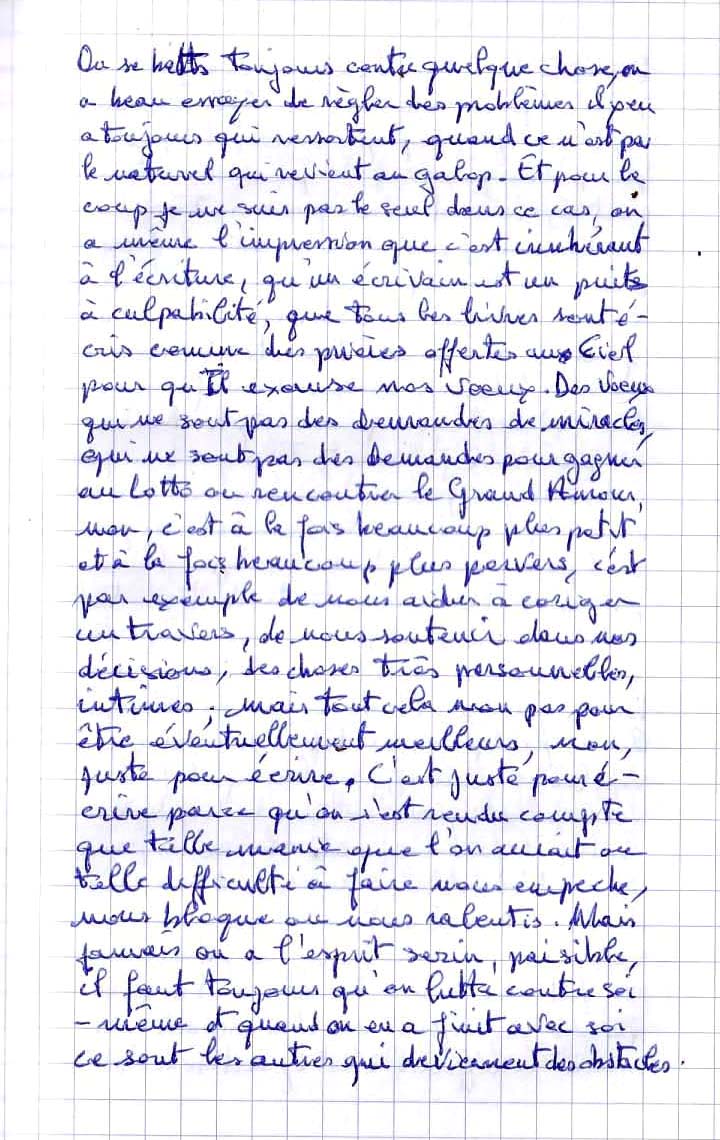 On se batts toujours contre quelque chose, on
a beau essayer de règler des problèmes il y en
a toujours qui ressortent, quand ce n'est pas
le naturel qui revient au galop. Et pour le
coup je ne suis pas le seul dans ce cas, on
a même l'impression que c'est innhérant
à l'écriture, qu'un écrivain est un puits
à culpabilité, que tous les livres sont é-
cris comme des prières offertes aux Ciel
pour qu'Il exauce nos voeux. Des voeux
qui ne sont pas des demandes de miracles,
qui ne sont pas des demandes pour gagner
au lotto ou rencontrer le Grand Amour,
non, c'est à la fois beaucoup plus petit
et à la fois beaucoup plus pervers, c'est
par exemple de nous aider à coriger
un travers, de nous soutenir dans nos
décisions, des choses très personnelles,
intimes ; mais tout cela non pas pour
être éventuellement meilleurs, non,
juste pour écrire. C'est juste pour é-
crire parce qu'on s'est rendu compte
que telle manie que l'on aurait ou
telle difficulté à faire nous empeche,
nous bloque ou nous ralentis. Mais
jamais on a l'esprit serin, paisible,
il faut toujours qu'on lutte contre soi
-même et quand on en a finit avec soi
ce sont les autres qui deviennent des obstacles.